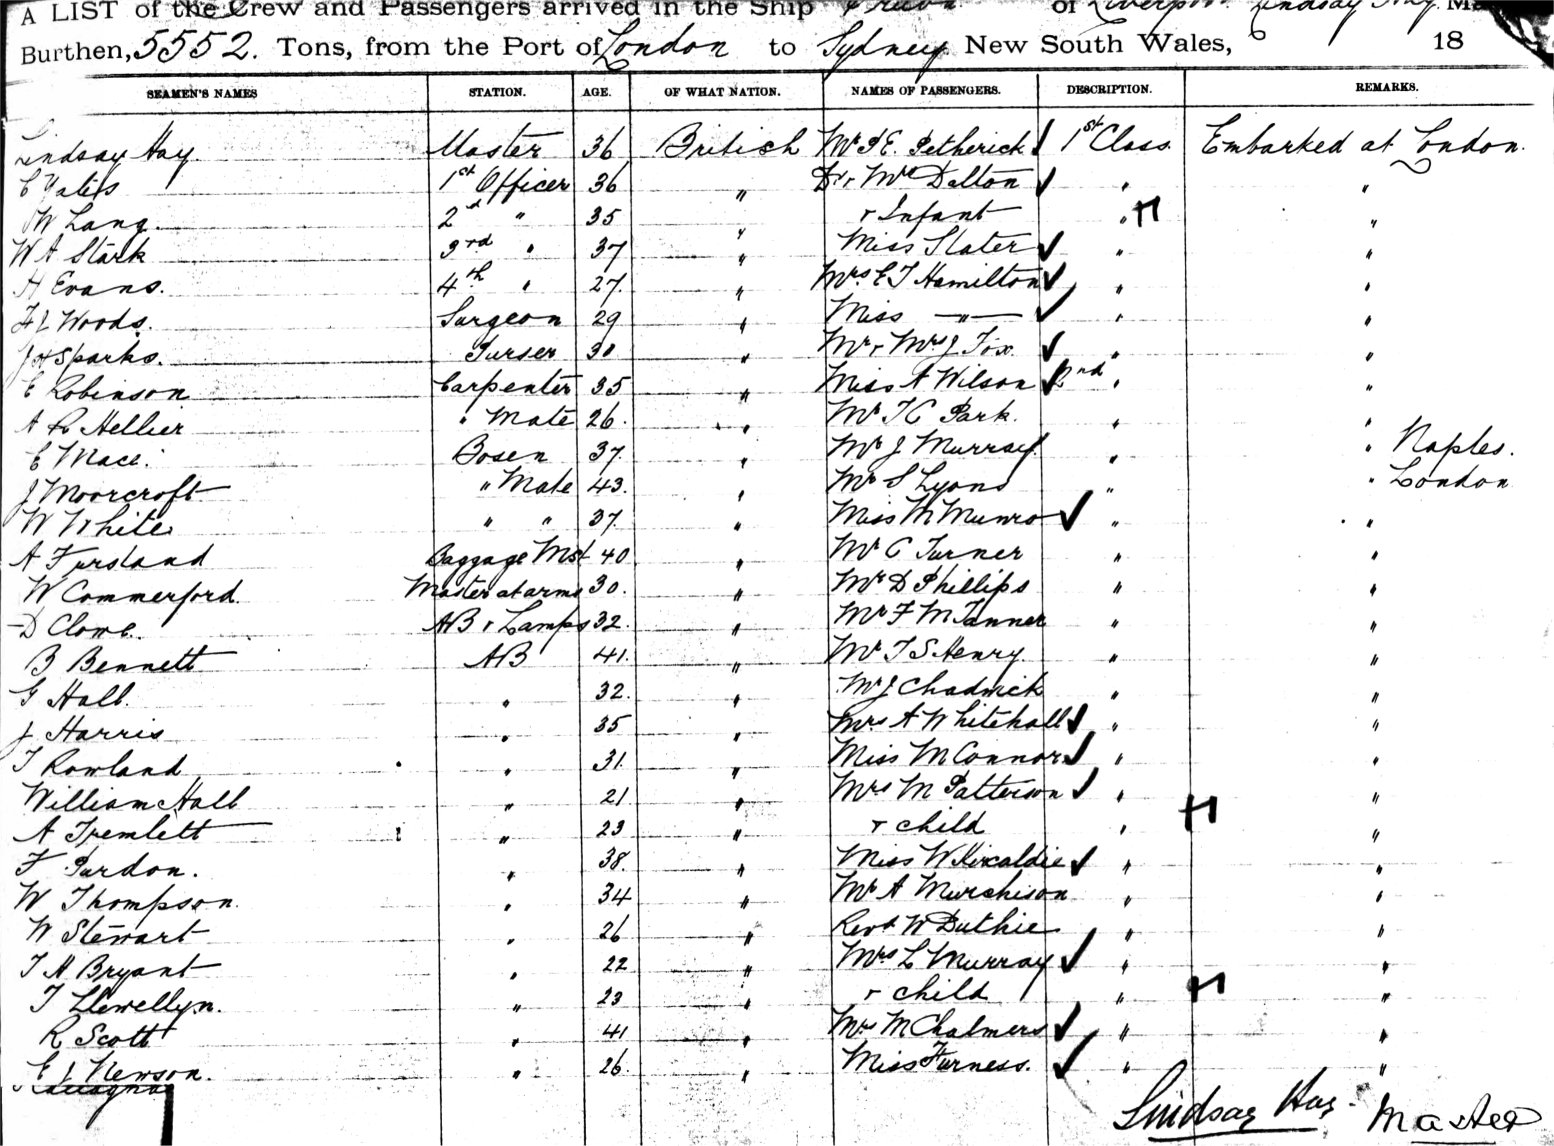 A LIST of the Crew and Passengers arrived in the Ship of Liverpool Lindsay Hay
Burthen, 5552. Tons, from the Port of London to Sydney New South Wales, 18
SEAMEN'S NAMES STATION. AGE. OF WHAT NATION. NAMES OF PASSENGERS. DESCRIPTION. REMARKS.
Lindsay Hay Master 36 British Mr P E. Petherick 1st Class Embarked at London.
C Yates 1st Officer 36 " Dr & Mrs Dalton " "
W Lang 2d " 35 " & Infant " H "
W A Stark 3rd " 37 " Miss Slater " "
H Evans. 4th " 27. " Mrs. E T Hamilton " "
Woods. Surgeon 29 " Miss —"— " "
J H Sparks. Purser 30 " Mr & Mrs J Fox " "
E Robinson Carpenter 35 " Miss A Wilson 2nd " "
A R Hellier " Mate 26. " Mr T C Park. " "
E Mace. Bosen 37. " Mr J Murray " " Naples.
J Moorcroft " Mate 43. " Mr S Lyons " " London
W White " " 37. " Miss M Munro " "
A Fursland Baggage Mst 40 " Mr C Turner " "
W Commerford. Master at arms 30. " Mr D Phillips " "
D Clowe. AB & Lamps 32. " Mr F M Tanner " "
B Bennett AB 41. " Mr T S Henry. " "
G Hall. " 32. " Mr J Chadwick " "
J Harris " 35 " Mrs A Whitehall " "
T Rowland " 31. " Miss M Connor " "
William Hall " 21 " Mrs M Patterson " "
A Tremlett " 23 " & child " H "
F Purdon. " 38. " Miss W Kircaldie " "
W Thompson. " 34 " Mr A Murchison " "
W Stewart " 26 " Revd W Duthie " "
T H Bryant " 22 " Mrs L Murray " "
T Llewellyn. " 23 " & child " H "
R Scott " 41 " Mrs M Chalmers " "
Newson. " 26 " Miss Furness. " "
Lindsay Hay. Master